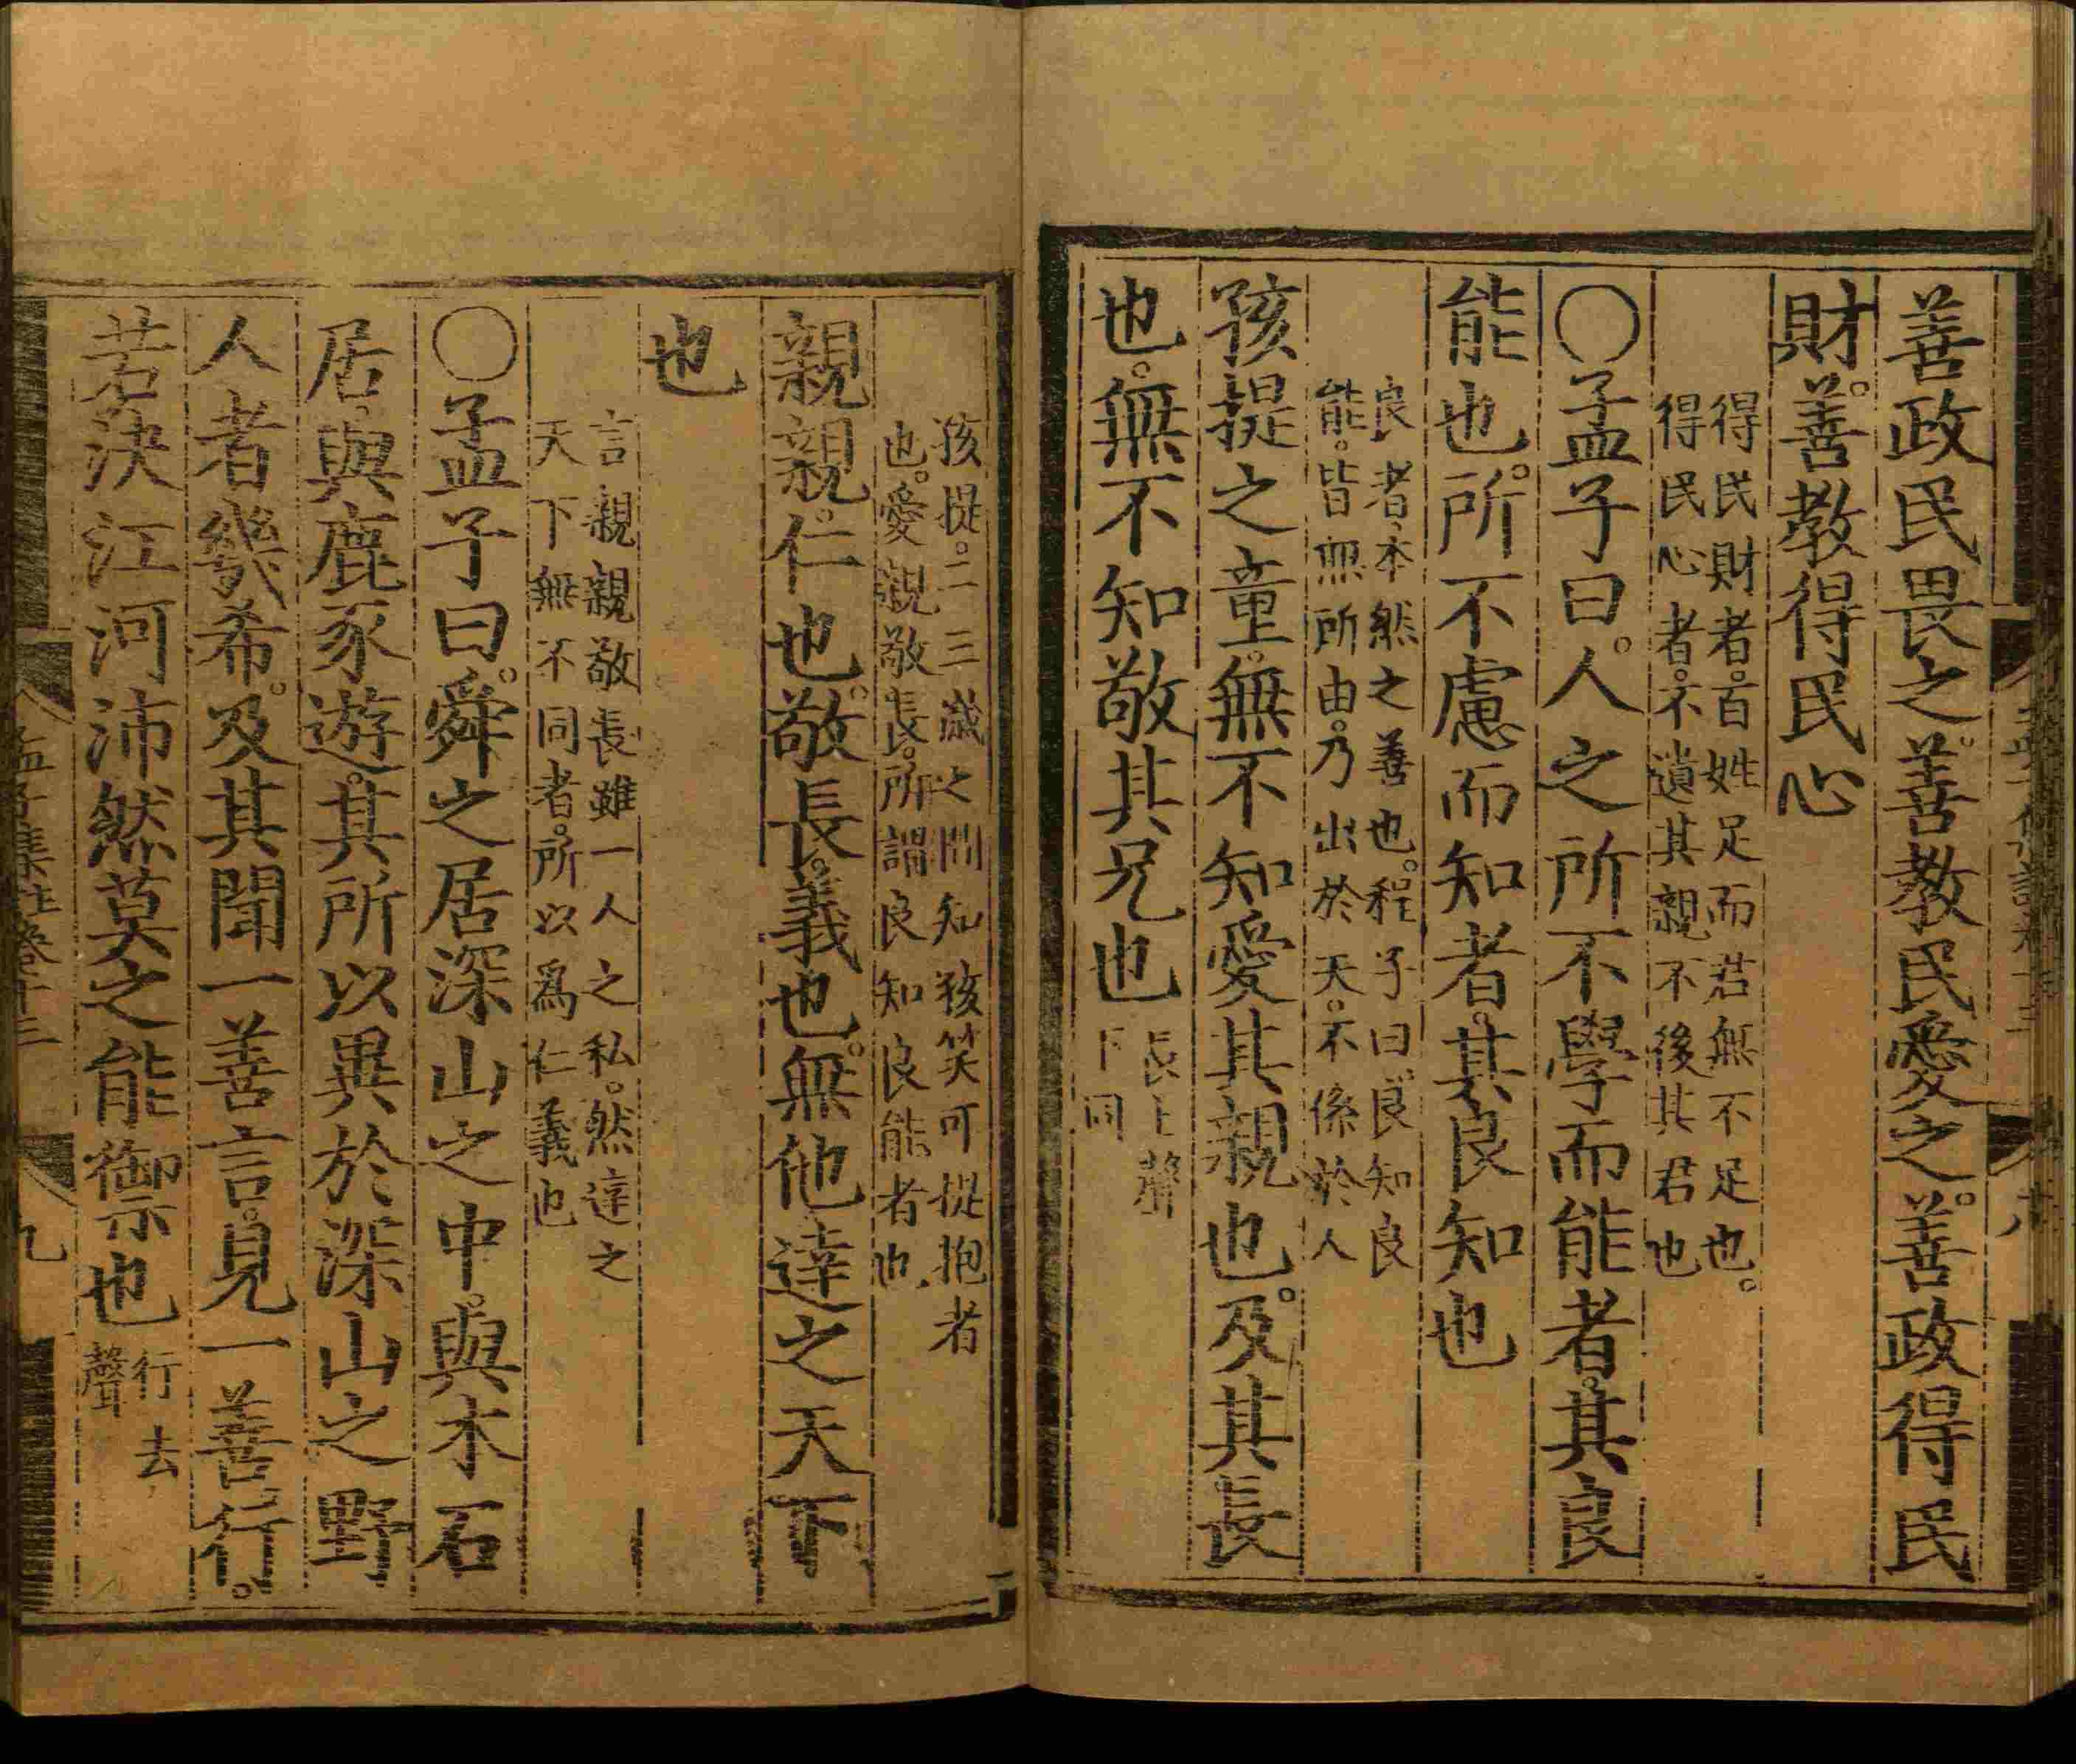 善政民畏之。善教民愛之。善政得民
財。善教得民心
得民財者。百姓足而君無不足也。
得民心者。不遺其親不後其君也
○孟子曰。人之所不學而能者。其良
能也。所不慮而知者。其良知也
良者、本然之善也。程子曰、良知良
能。皆無所由。乃出於天。不係於人
孩提之童。無不知愛其親也。及其長
也。無不知敬其兄也
長上聲
下同
孩提。二三歲之間知孩笑可提抱者
也。愛親敬長。所謂良知良能者也、
親親。仁也。敬長。義也。無他達之天下
也
言親親敬長雖一人之私。然達之
天下無不同者。所以爲仁義也
○孟子曰。舜之居深山之中。與木石
居、與鹿豕遊。其所以異於深山之野
人者幾希。及其聞一善言。見一善行。
若決江河沛然莫之能禦也
行去
聲
孟子集註卷十三
九